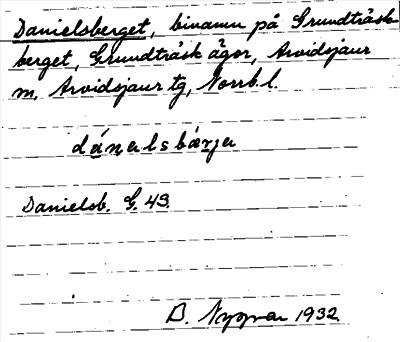 Danielsberget, binamn på Grundträsk-
berget, Grundträsk ägor, Arvidsjaur
m, Arvidsjaur tg, Norrb. l.
dánəlsbærjə
Danielsb. G. 43.
1932